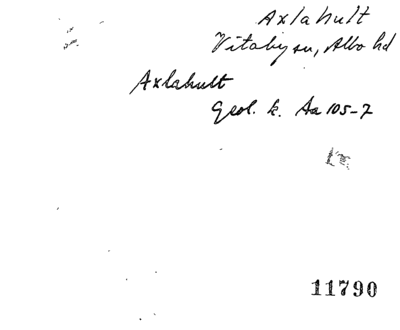 Axlahult
Vitaby sn, Albo hd
Axlahult
Geol. k. Aa 105-7
11790